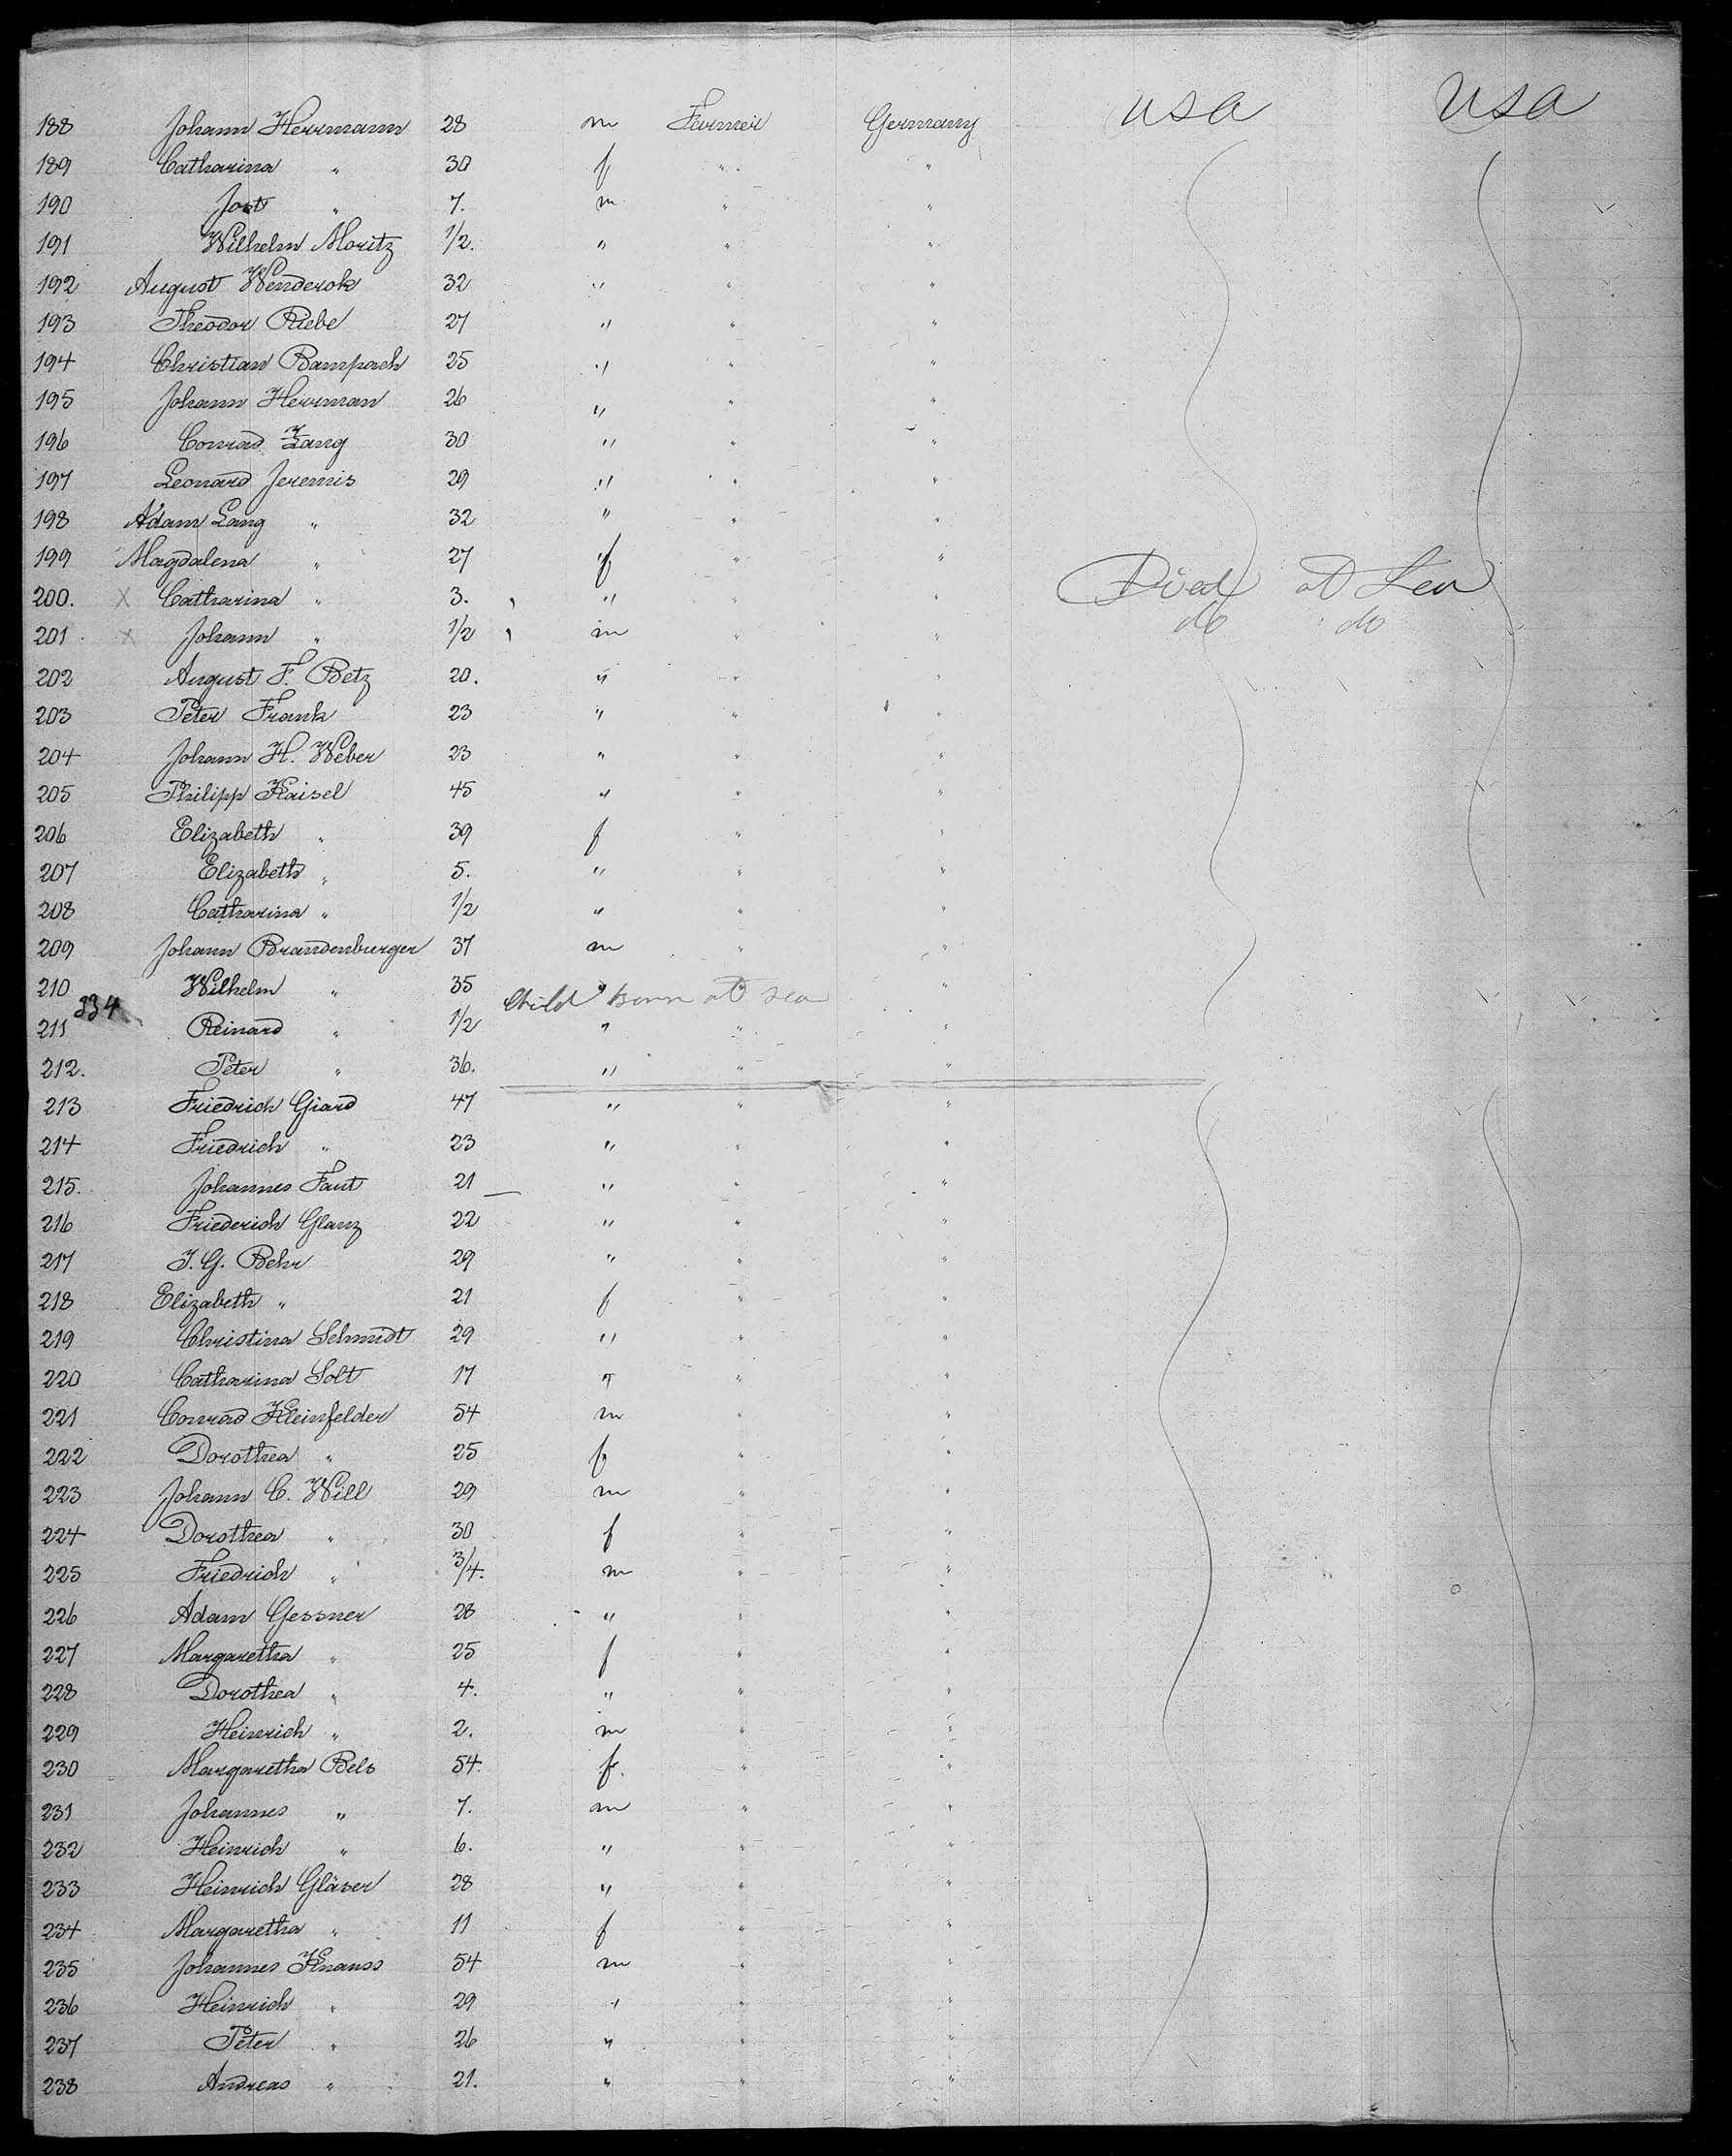 188 Johann Herrmann 28 m Farmer Germany USA USA
189 Catharina " 30 f " "
190 Jost " 7. m " "
191 Wilhelm Moritz 1/2. " " "
192 August Wenderok 32 " " "
193 Theodor Riebe 27 " " "
194 Christian Bampach 25 " " "
195 Johann Herrman 26 " " "
196 Conrad Zang 30 " " "
197 Leonard Jeremis 29 " " "
198 Adam Lang " 32 " " "
199 Magdalena " 27 f " "
200. X Catharina " 3. " " " Died at Sea
201 X Johann " 1/2 m " " do do
202 August F. Betz 20. " " "
203 Peter Frank 23 " " "
204 Johann H. Weber 23 " " "
205 Philipp Kaisel 45 " " "
206 Elizabeth " 39 f " "
207 Elizabeth " 5. " " "
208 Catharina " 1/2 " " "
209 Johann Brandenburger 37 m " "
210 Wilhelm " 35 " "
334 Child born at sea
211 Reinard " 1/2 " " "
212. Peter " 36. " " "
213 Friedrich Giard 47 " " "
214 Friedrich " 23 " " "
215. Johannes Faut 21 " " "
216 Friederich Glanz 22 " " "
217 J. G. Behr 29 " " "
218 Elizabeth " 21 f " "
219 Christina Schmidt 29 " " "
220 Catharina Solt 17 " " "
221 Conrad Kleinfelder 54 m " "
222 Dorothea " 25 f " "
223 Johann C. Will 29 m " "
224 Dorothea " 30 f " "
225 Friedrich " 3/4. m " "
226 Adam Gessner 28 " " "
227 Margaretha " 25 f " "
228 Dorothea " 4. " " "
229 Heinrich " 2. m " "
230 Margaretha Bels 54. f. " "
231 Johannes " 7. m " "
232 Heinrich " 6. " " "
233 Heinrich Gläser 28 " " "
234 Margaretha " 11 f " "
235 Johannes Knauss 54 m " "
236 Heinrich " 29 " " "
237 Peter " 26 " " "
238 Andreas " 21. " " "